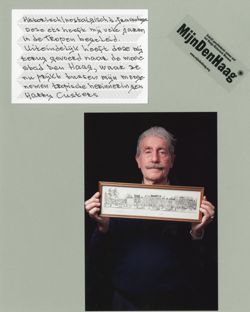 Historisch! nostalgisch!
Deze ets heeft mij vele jaren
in de Tropen begeleid.
Uiteindelijk heeft deze mij
terug gevoerd naar de mooie
stad den Haag, waar ze
nu prijkt tussen mijn mooge-
nomen tropische herinneringen
Harry Custers
MijnDenHaag